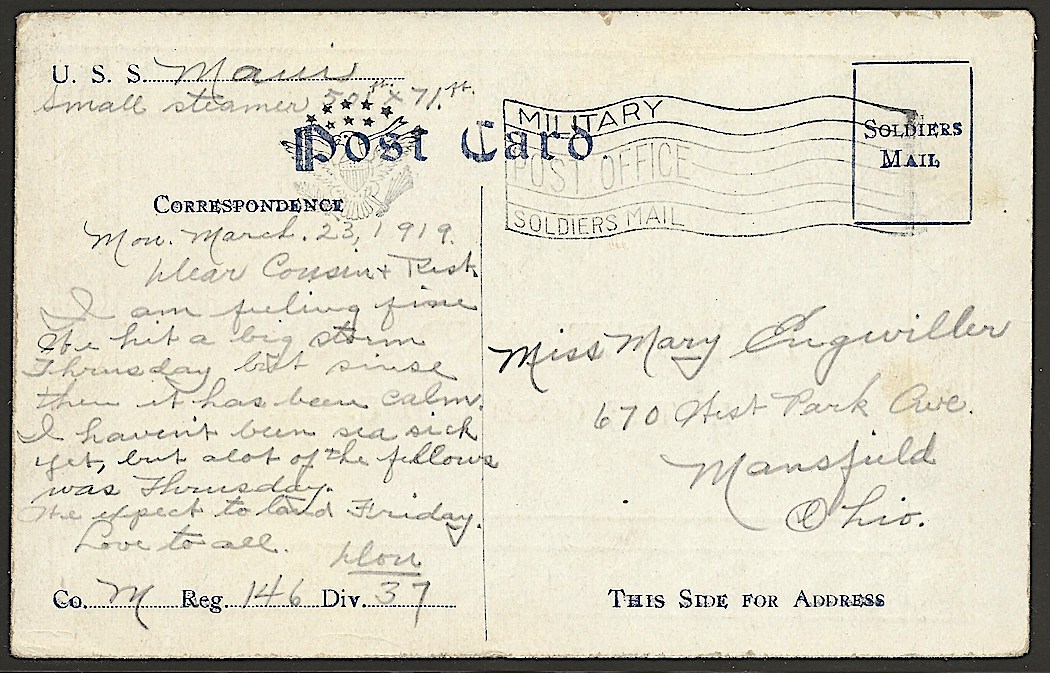 U. S. S. Maui
Small steamer 501 ft. x 71 ft.
Post Card
MILITARY
POST OFFICE
SOLDIERS MAIL
SOLDIERS
MAIL
CORRESPONDENCE
Mon. March. 23, 1919.
Dear Cousin & Rest
I am feeling fine
We hit a big storm
Thrusday but sinse
then it has been calm.
I haven't been sea sick
yet, but alot of the fellows
was Thrusday.
We expect to land Friday.
Love to all.
Don
Co. M Reg. 146 Div. 37
Miss Mary Engwiller
670 West Park Ave.
Mansfield
Ohio.
THIS SIDE FOR ADDRESS